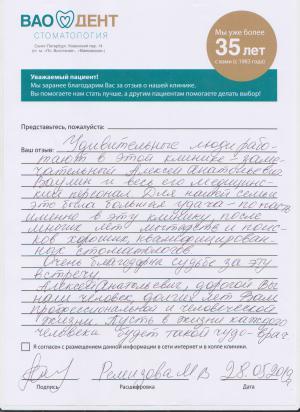 ВАО ДЕНТ
СТОМАТОЛОГИЯ
Мы уже более
35 лет
с вами (с 1983 года)
Уважаемый пациент!
Мы заранее благодарим Вас за отзыв о нашей клинике.
Вы помогаете нам стать лучше, а другим пациентам помогаете делать выбор!
Представьтесь, пожалуйста:
Ваш отзыв: Удивительные люди рабо-
тают в этой клинике - заме-
чательный Алексей Анатольевич
и весь его медицинс-
кий персонал. Для нашей семьи
это была большая удача - попасть
именно в эту клинику, после
многих лет мытарств и поис-
ков хороших, квалифицирован-
ных стоматологов.
Очень благодарна судьбе за эту
встречу.
Алексей Анатольевич, дорогой Вы
наш человек, долгих лет Вам
профессиональной и человеческой
жизни. Пусть в жизни каждого
человека будет такой чудо-врач
Я согласен с размещением данной информации в сети интернет и в холле клиники.
Ремизова МВ 28.05.2019
Подпись Расшифровка Дата